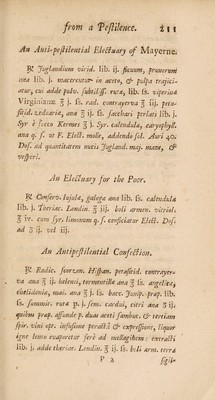 from a Pestilence. 211
An Anti-pestilential Electuary of Mayerne.
℞ Juglandium virid. lib. ij. ficuum, prunorum
ana lib. j. macerentur in aceto, & pulpa trajici-
atur, cui adde pulv. subtiliss. rutæ, lib. ss. viperinæ
Virginianæ ℥ j. ss. rad. contrayervæ ℥ iij. peta-
sitid. zedoariæ, ana ℥ ij. ss. sacchari perlati lib. j.
Syr. è succo Kermes ℥ j. Syr. calendula, caryophyll.
ana q. s. ut F. Elect. molle, addendo fol. Auri 40.
Dos. ad quantitatem nucis Jugland. maj. mane, &
vesperi.
An Electuary for the Poor.
℞ Conserv. lujulæ, galega ana lib. ss. calendula
lib. j. Theriac. Londin. ℥ iij. boli armen. vitriol.
℥ iv. cum Syr. limonum q. s. conficiatur Elect. Dos.
ad ʒ ij. vel iij.
An Antipestilential Confection.
℞ Radic. scorzon. Hispan. petasitid. contrayer-
væ ana ℥ ij. helenii, tormentillæ ana ℥ ss. angelicæ,
chelidonia, mai. ana ℥ j. ss. bacc. Junip. præp. lib.
ss. summit. ruta p j. sem. cardui, citri ana ℥ ij.
quibus præp. affunde p. duas aceti sambuc. & tertiam
spir. vini opt. infusione peractâ & expressione, liquor
igne lento evaporetur ferè ad mellaginem: extracti
lib. j. adde theriac. Londin. ℥ ij. ss. boli arm. terræ
P 2 sigil-